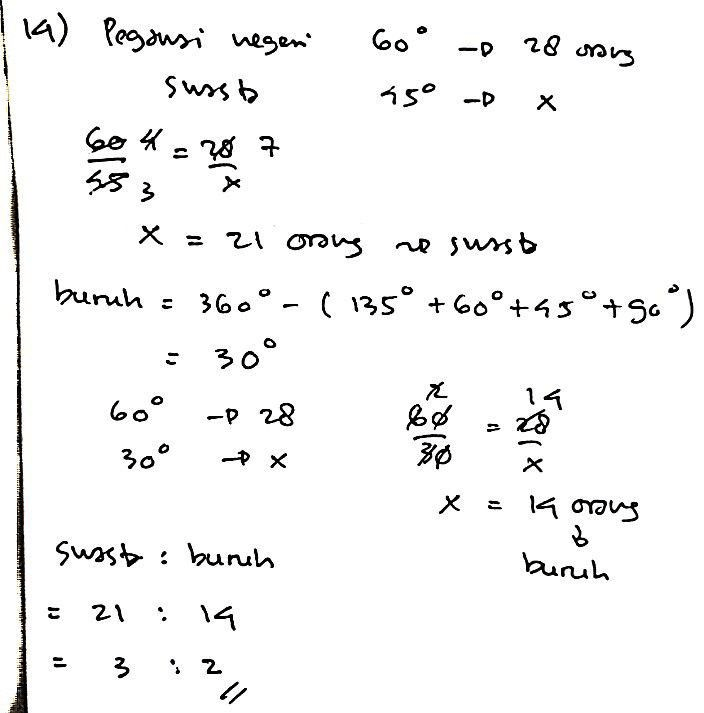 14) Pegawai negeri 60° → 28 orang
swasta 45° → x
60 4 / 45 3 = 28 7 / x
x = 21 orang → swasta
buruh = 360° - (135° + 60° + 45° + 90°)
= 30°
60° → 28
30° → x
2
60 / 30 = 28 14 / x
x = 14 orang
↓
buruh
swasta : buruh
= 21 : 14
= 3 : 2 //